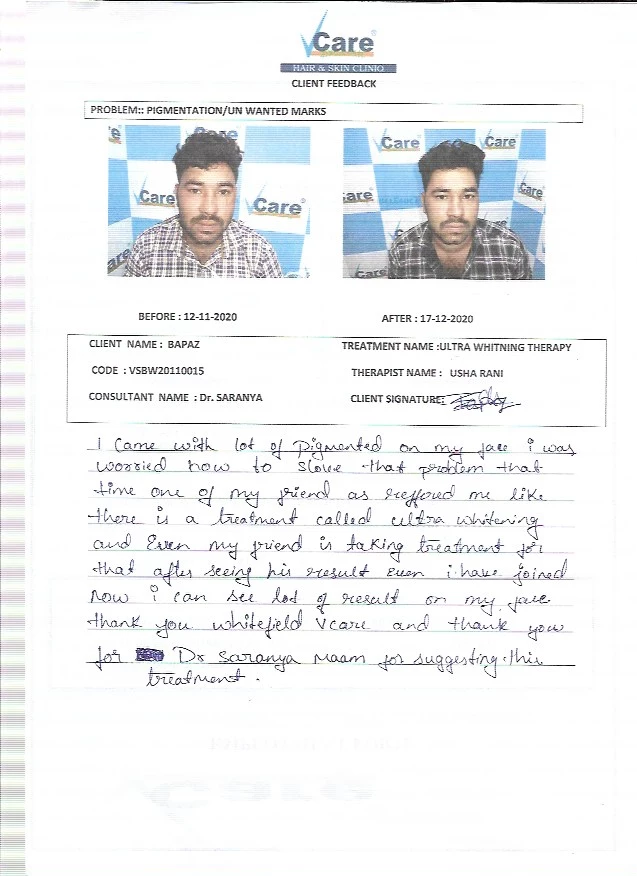 VCare
HAIR & SKIN CLINIQ
CLIENT FEEDBACK
PROBLEM:: PIGMENTATION/UN WANTED MARKS
Care
Care
Care
Care
Care
Care
Care
Care
Care
BEFORE : 12-11-2020
AFTER : 17-12-2020
CLIENT NAME : BAPAZ
TREATMENT NAME :ULTRA WHITNING THERAPY
CODE : VSBW20110015
THERAPIST NAME : USHA RANI
CONSULTANT NAME : Dr. SARANYA
CLIENT SIGNATURE:
I Came with lot of Pigmented on my face i was
worried how to slove that problem that
time one of my friend as reffored me like
there is a treatment called ultra whitening
and Even my friend is taking treatment for
that after seeing his result Even i have joined
now i can see lot of result on my face
thank you whitefield Vcare and thank you
for Dr Saranya Maam for suggesting this
treatment.